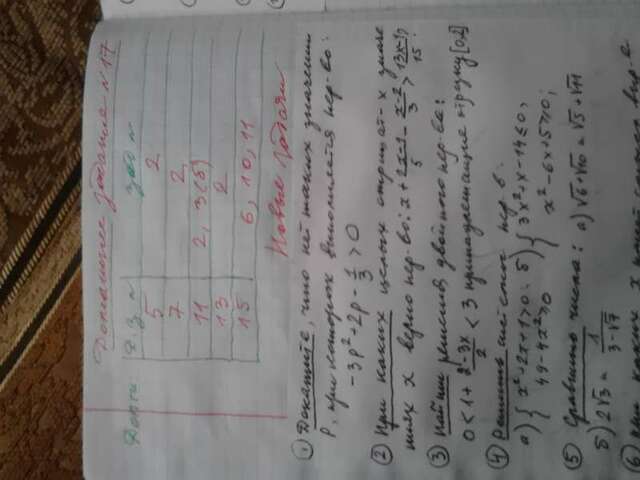 Домашнее задание № 17
Д.З. №
5 2
7 2,
11 2, 3(б)
13 2
15 6, 10, 11
Новые задачи
① Докажите, что нет таких значений
p, при которых выполняется нер-во:
-3p²+2p-1/3 > 0
② При каких целых отрицат-х значе
ниях x верно нер-во: x + (2x-1)/5 -
③ Найти решения двойного нер-ва:
0 < 1 + (2-3x)/2 < 3 принадлежащие отрезку
④ Решить систему нер-в.
а) { x²+2x+1>0 б) { 3x²+x-14≤0,
49-4x²≥0 x²-6x+5≥0;
⑤ Сравнить числа: а) √6+√10 и √5+√11
б) 2√3 и 1/(3-√7)
⑥ При каких x имеет смысл выр-е